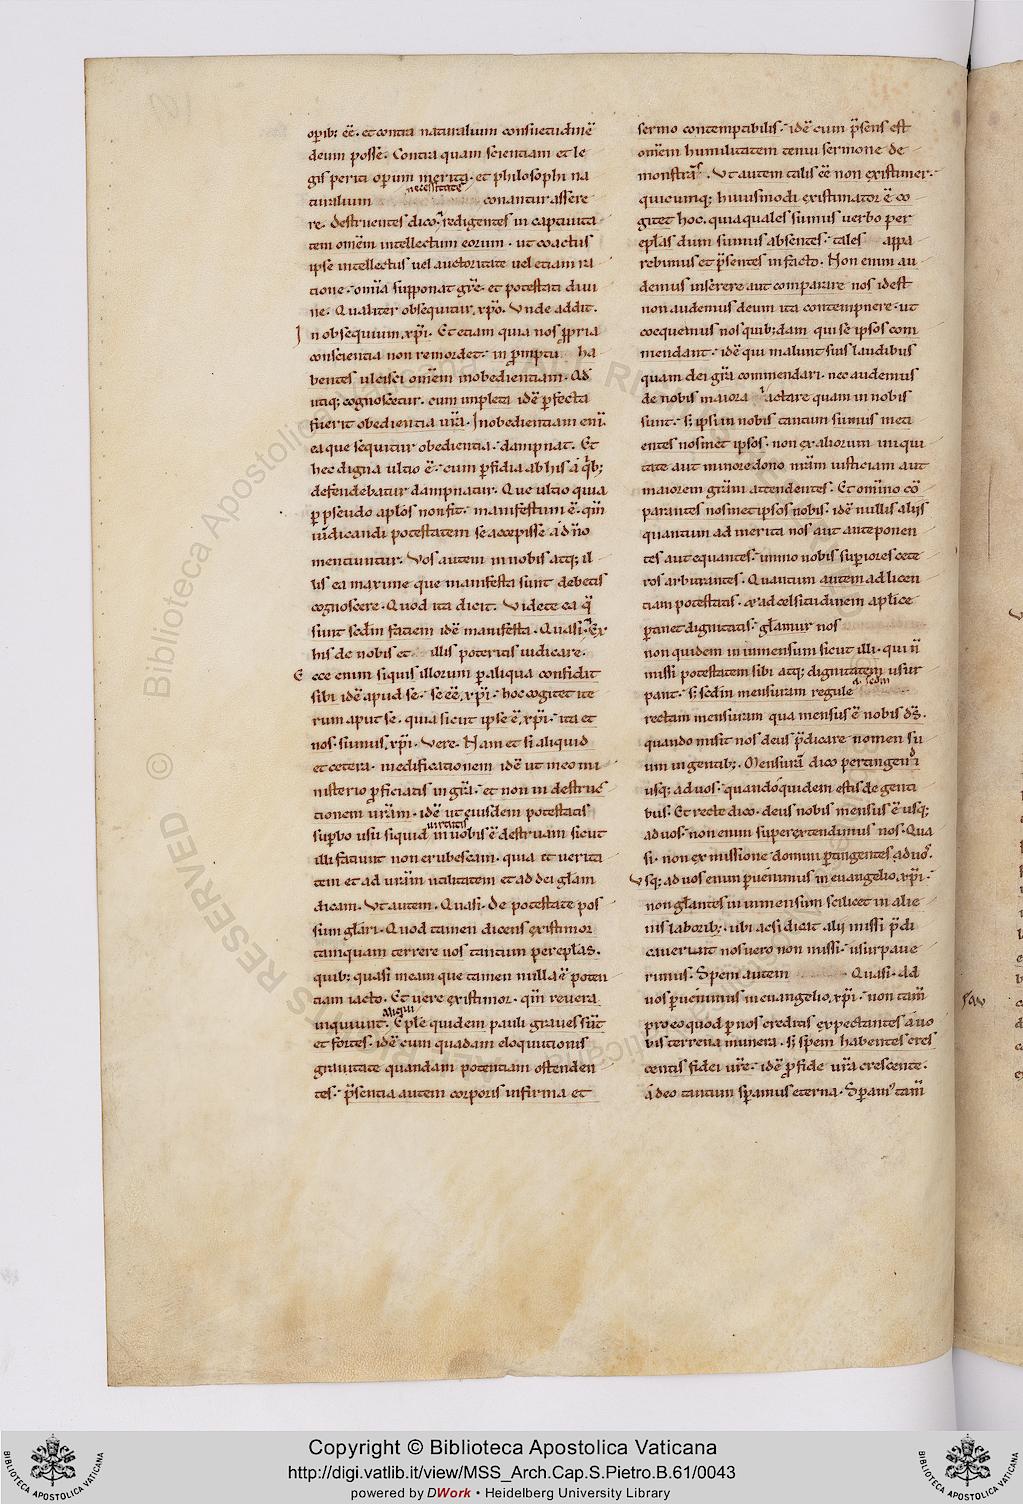 opib; ee. et contra naturalium consuetudinē
deum posse. Contra quam scientiam et le
gis periti operum merita. et philosophi na
necessitate
turalium conantur assere
re. destruentes dico. redigentes in captiuita
tem omēm intellectum eorum. ut coactus
ipse intellectus uel auctoritate uel etiam ra
tione. omīa supponat grē. et potestati diui
ne. Qualiter obsequitur xpō. Vnde addit.
In obsequium xpī. Et etiam quia nos ppria
conscientia non remordet. in pmptu ha
bentes ulcisci omēm inobedientiam. Ad
utiq; cognoscetur. cum impleta idē pfecta
fuerit obedientia uīa. Inobedientiam enī
ea que sequitur obedientia. dampnat. Et
hec digna ultio ē. cum pfidia ab his a qb;
defendebatur dampnatur. Que ultio quia
p pseudo aplōs non fit. manifestum ē. qm
iudicandi potestatem se accepisse a dno
mentiuntur. Vos autem in nobis atq; il
lis ea maxime que manifesta sunt debetis
cognoscere. Quod ita dicit. Videte ea q
sunt scdm faciem idē manifesta. Quasi. Ex
his de nobis et illis poteritis iudicare.
Ecce enim siquis illorum p aliqua confidit
sibi idē apud se. se eē xpī. hoc cogitet ite
rum aput se. quia sicut ipse ē xpī. ita et
nos. sumus xpī. Vere. Nam et si aliquid
et cetera. in edificationem idē ut meo mi
nisterio pficiatis in grā. et non in destruc
tionem uram. idē ut eiusdem potestatis
uirtutis
supbo usu siquid in uobis ē destruam sicut
illi faciunt non erubescam. quia et uerita
tem et ad uram utilitatem et ad dei glam
dicam. Vt autem. Quasi. De potestate pos
sum glari. Quod tamen dicens existimor
tamquam terrere uos tantum per eplas.
quib; quasi meam que tamen nulla ē poten
tiam iacto. Et uere existimor. qm reuera
aliqui
inquiunt. Eple quidem pauli graues sūt
et fortes. idē cum quadam eloquutionis
grauitate quandam potentiam ostenden
tes. psentia autem corporis infirma et
sermo contemptibilis. idē cum psens est
omēm humilitatem tenui sermone de
monstrat. Vt autem talis eē non existimer.
quicumq; huiusmodi existimator ē co
gitet hoc. quia quales sumus uerbo per
eplas dum sumus absentes. tales appa
rebimus et psentes in facto. Non enim au
demus inserere aut comparare nos idest
non audemus deum ita contempnere. ut
coequemus nos quib;dam qui se ipsos com
mendant. idē qui malunt suis laudibus
quam dei gra commendari. nec audemus
de nobis maiora iactare quam in nobis
sunt. s; ipsi in nobis tantum sumus meti
entes nosmet ipsos. non ex aliorum iniqui
tate aut minore dono nram iusticiam aut
maiorem gram attendentes. Et omino cō
parantes nosmetipsos nobis. idē nullis aliis
quantum ad merita nos aut anteponen
tes aut equantes. immo nobis supiores cete
ros arbitrantes. Quantum autem ad licen
tiam potestatis. et ad celsitudinem aplice
ptinet dignitatis. glamur nos
non quidem in immensum sicut illi. qui n
missi potestatem sibi atq; dignitatem usur
pant. s; scdm mensuram regule
rectam mensuram qua mensus ē nobis ds.
quando misit nos deus pdicare nomen su
um in gentib;. Mensurā dico pertingendi
usq; ad uos. quando quidem estis de genti
bus. Et recte dico. deus nobis mensus ē usq;
ad uos. non enim superextendimus nos. Qua
si. non ex missione domini ptingentes ad uos.
Vsq; ad uos enim puenimus in euangelio xpī.
non glantes in immensum scilicet in alie
nis laborib;. ubi ac si dicat. alii missi pdi
cauerunt nos uero non missi. usurpaue
rimus. Spem autem Quasi. ad
uos puenimus in euangelio xpī. non tam
pro eo quod p nos creditis expectantes a uo
bis terrena munera. s; spem habentes cres
centis fidei ure. idē p fide ura crescente.
a deo tantum spamus eterna. Spam tam
© Biblioteca Apostolica Vaticana
Copyright © Biblioteca Apostolica Vaticana
http://digi.vatlib.it/view/MSS_Arch.Cap.S.Pietro.B.61/0043
powered by DWork • Heidelberg University Library